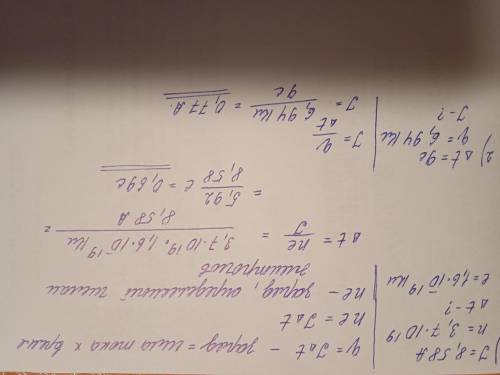 1) I = 8,58 А
n = 3,7·10¹⁹
Δt - ?
e = 1,6·10⁻¹⁹ Кл
q = IΔt - заряд = сила тока × время
ne = IΔt
ne - заряд, определенный числом электронов
Δt = ne/I = 3,7·10¹⁹·1,6·10⁻¹⁹ Кл/8,58 А =
= 5,92/8,58 с = 0,69 с
2) Δt = 9с
q = 6,94 Кл
I - ?
I = q/Δt
I = 6,94 Кл/9с = 0,77 А.